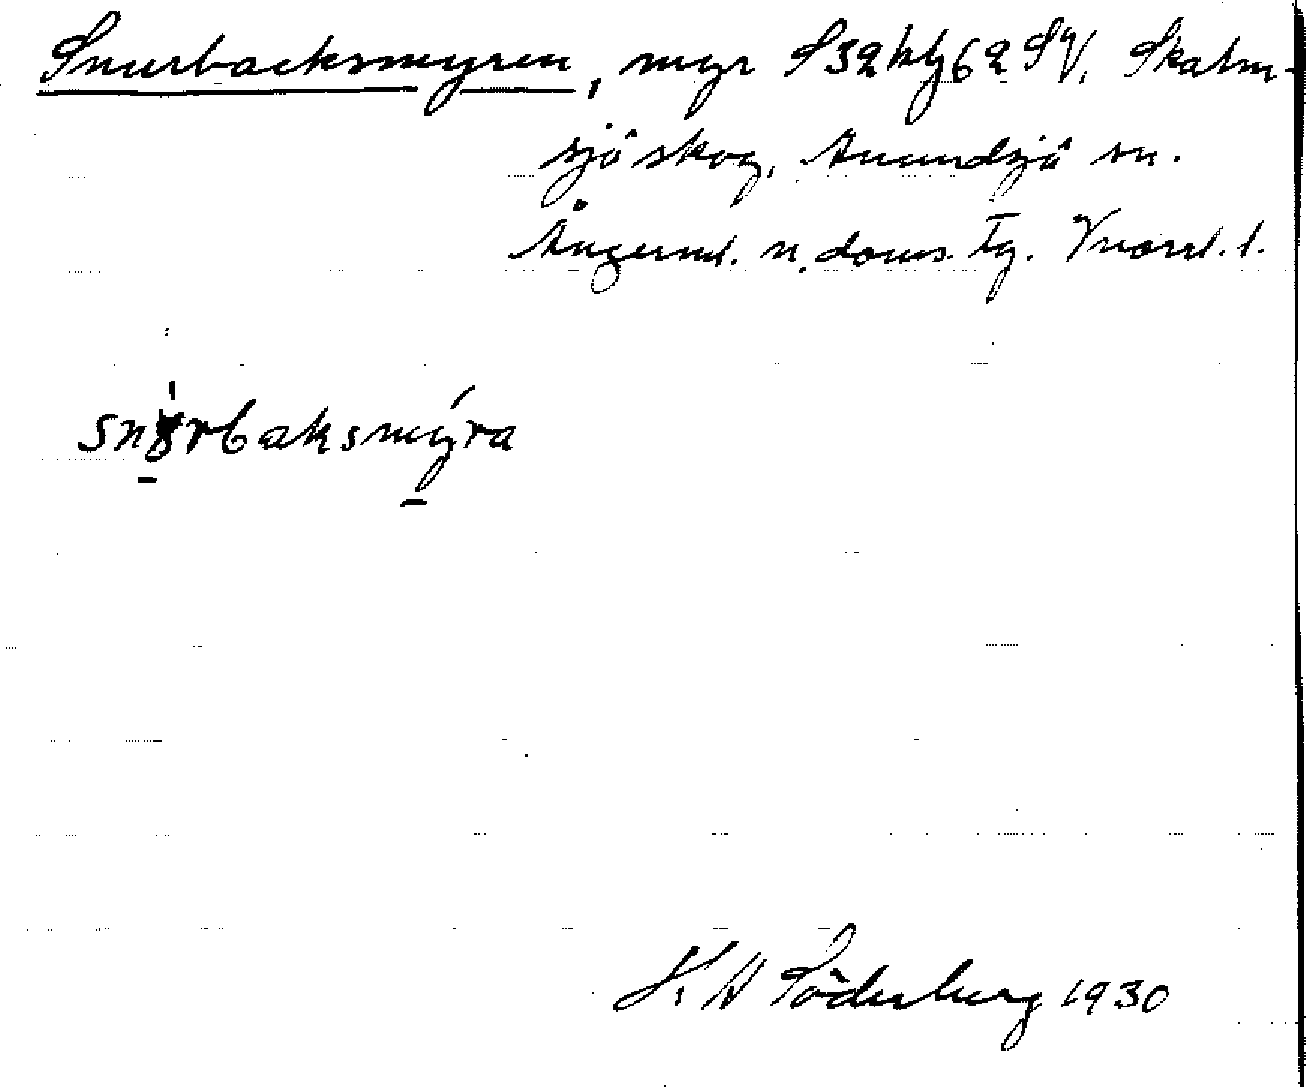 Snurbacksmyren, myr S32hg62SV, Skalm-
sjöskog, Anundsjö sn.
Ångerml. n. doms. Tg. Vnorrl. l.
snɤrbaksmýra
K A Söderberg 1930